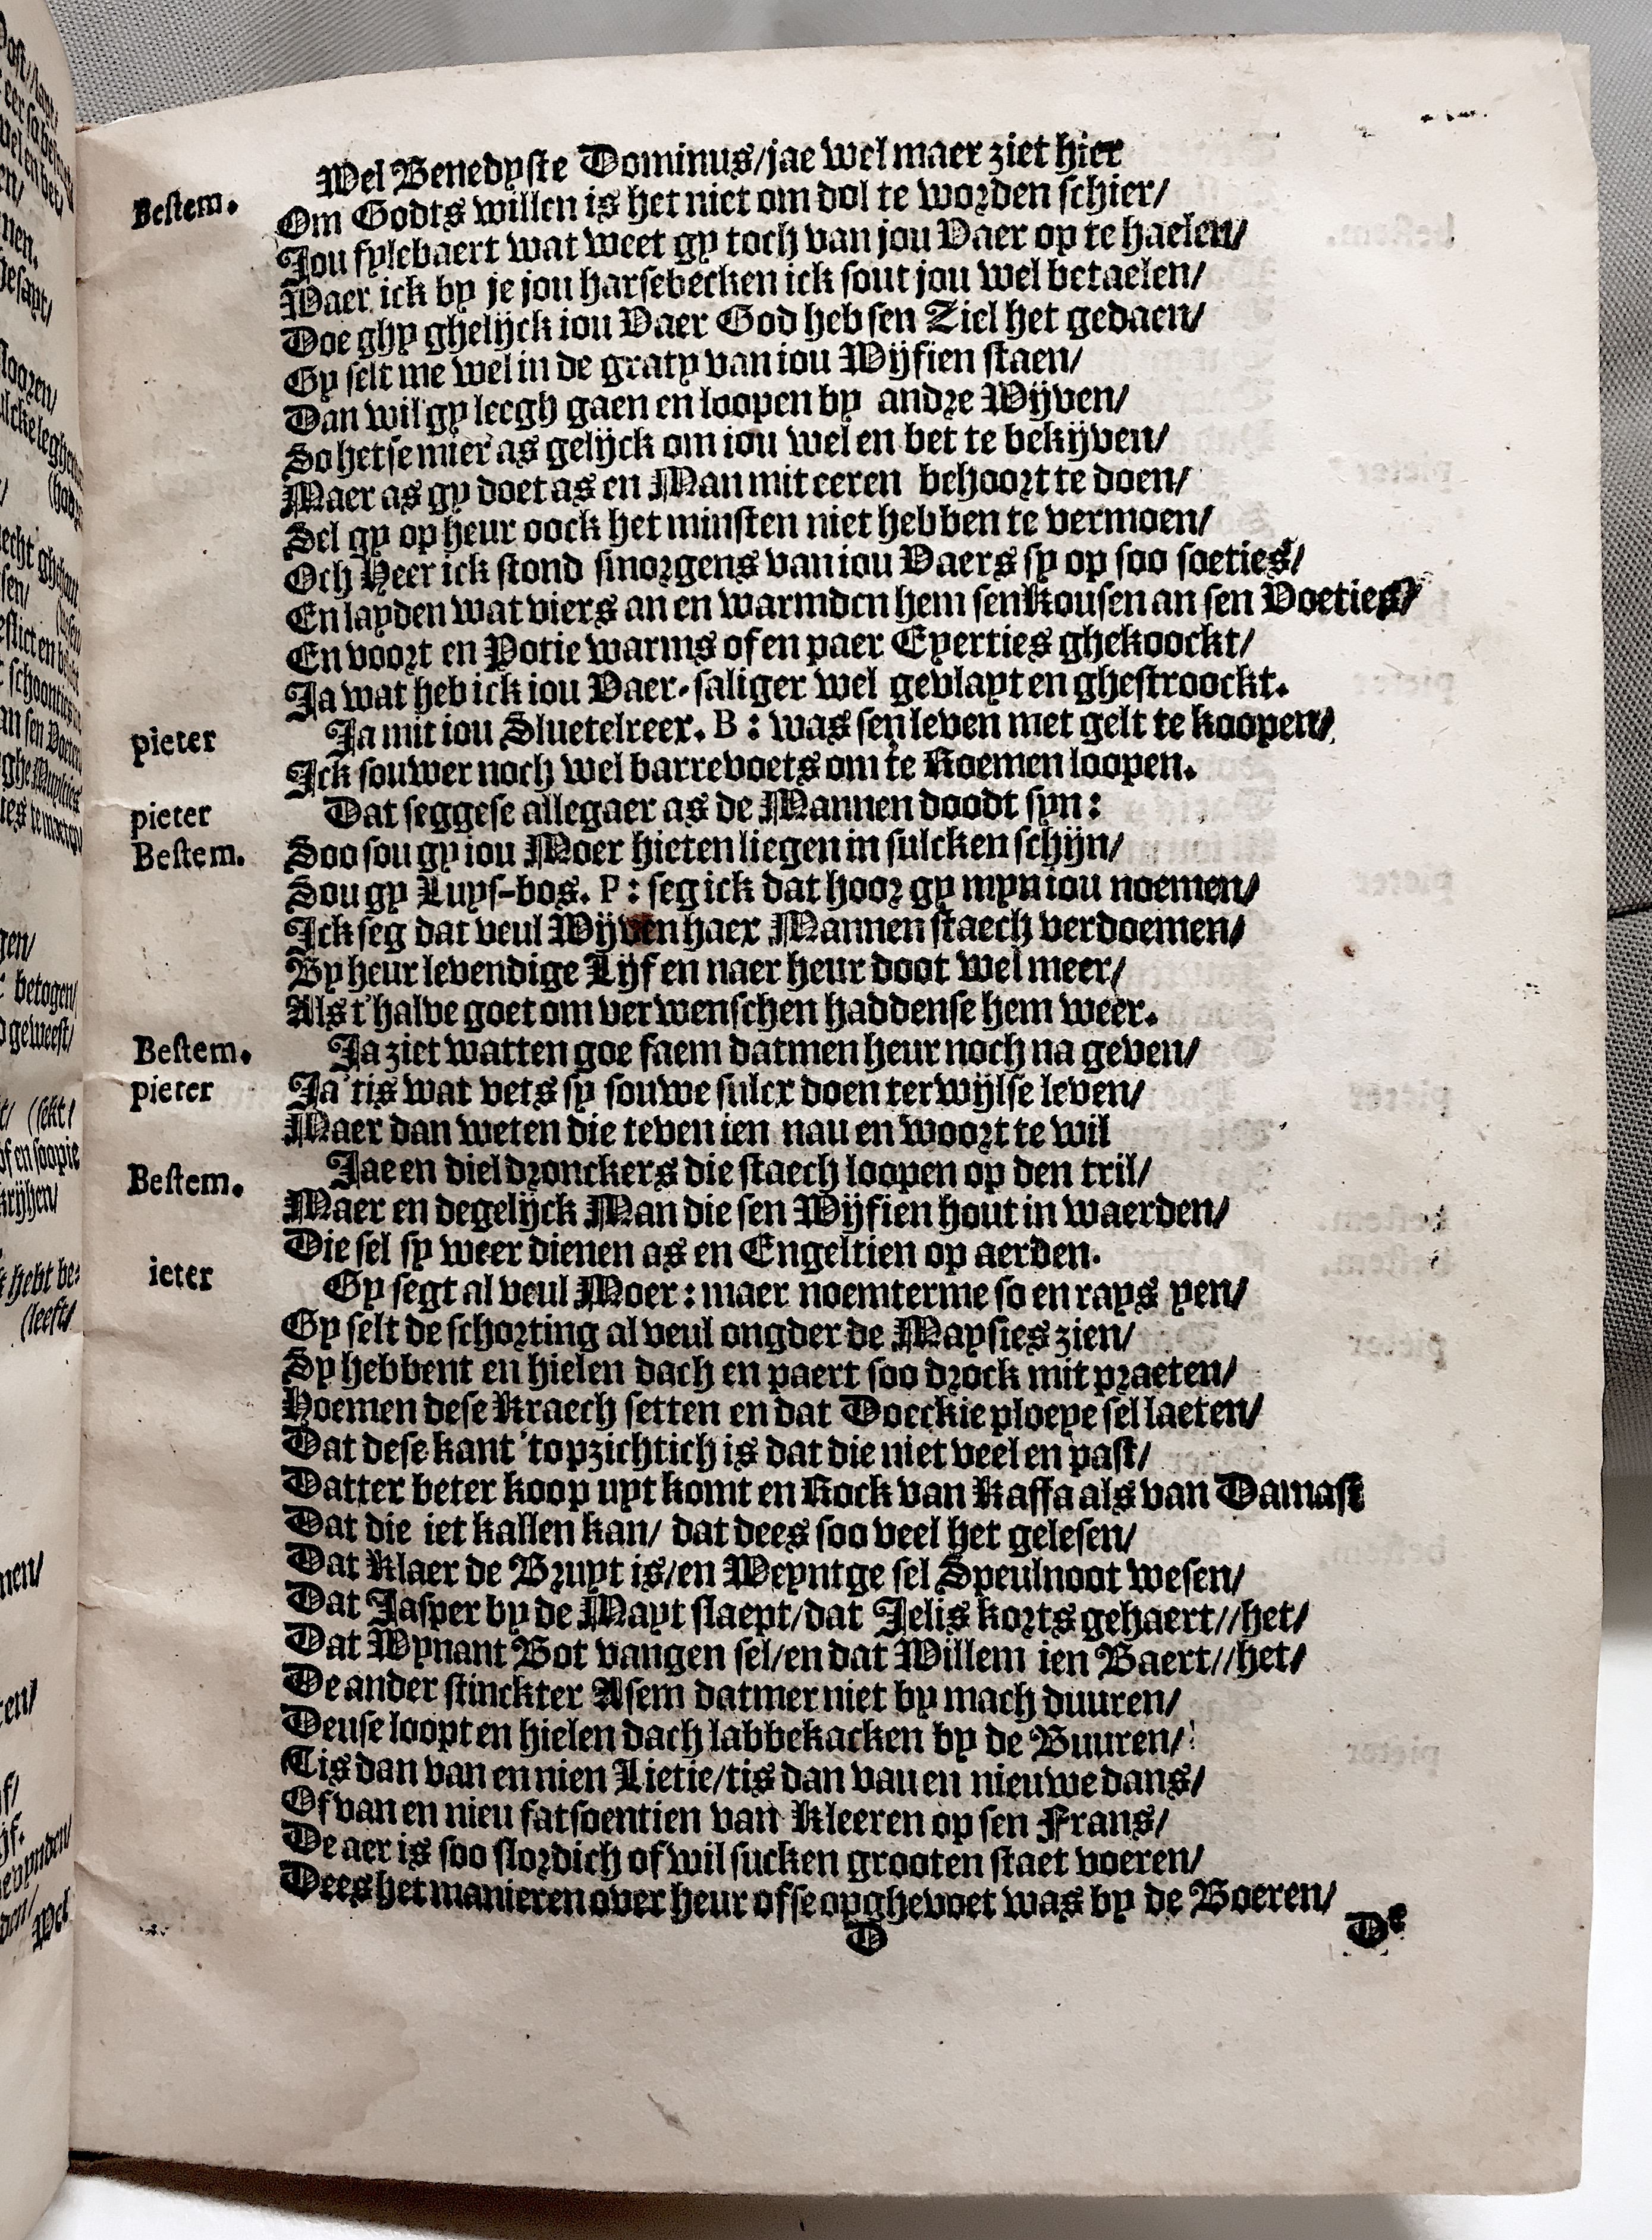 Wel Benedyste Dominus/jae wel maer ziet hier
Bestem. Om Godts willen is het niet om dol te worden schier/
Jou fylebaert wat weet gy toch van jou Vaer op te haelen/
Waer ick by je jou harsebecken ick sout jou wel betaelen/
Doe ghy ghelijck iou Vaer God heb sen Ziel het gedaen/
Gy selt me wel in de graty van iou Wijfien staen/
Dan wil gy leegh gaen en loopen by andre Wijven/
So hetse mier as gelijck om iou wel en bet te bekijven/
Maer as gy doet as en Man mit eeren behoort te doen/
Sel gy op heur oock het minsten niet hebben te vermoen/
Och Heer ick stond smorgens van iou Vaers sy op soo soeties/
En layden wat viers an en warmden hem sen Kousen an sen Voeties/
En voort en Potie warms of en paer Eyerties ghekoockt/
Ja wat heb ick iou Vaer-saliger wel gevlayt en ghestroockt.
pieter Ja mit iou Sluetelreex. B: was sen leven met gelt te koopen/
Ick souwer noch wel barrevoets om te Roemen loopen.
pieter Dat seggese allegaer as de Mannen doodt syn:
Bestem. Soo sou gy iou Moer hieten liegen in sulcken schijn/
Sou gy Luys-bos. P: seg ick dat hoor gy myn iou noemen/
Ick seg dat veul Wijven haer Mannen staech verdoemen/
By heur levendige Lijf en naer heur doot wel meer/
Als t'halve goet om ver wenschen haddense hem weer.
Bestem. Ja ziet watten goe faem datmen heur noch na geven/
pieter Ja 'tis wat vets sy souwe sulcx doen terwijlse leven/
Maer dan weten die teven ien nau en woort te wil
Bestem. Jae en diel dronckers die staech loopen op den tril/
Maer en degelijck Man die sen Wijfien hout in waerden/
Die sel sy weer dienen as en Engeltien op aerden.
ieter Gy segt al veul Moer: maer noemterme so en rays yen/
Gy selt de schorting al veul ongder de Maysies zien/
Sy hebbent en hielen dach en paert soo drock mit praeten/
Hoemen dese Kraech setten en dat Doeckie ploeye sel laeten/
Dat dese kant 'topzichtich is dat die niet veel en past/
Datter beter koop uyt komt en Rock van Kaffa als van Damast
Dat die iet kallen kan/ dat dees soo veel het gelesen/
Dat Klaer de Bruyt is/en Weyntge sel Speulnoot wesen/
Dat Jasper by de Mayt slaept/dat Jelis korts gehaert//het/
Dat Wynant Bot vangen sel/en dat Willem ien Baert//het/
De ander stinckter Asem datmer niet by mach duuren/
Deuse loopt en hielen dach labbekacken by de Buuren/
Tis dan van en nien Lietie/tis dan van en nieuwe dans/
Of van en nieu fatsoentien van Kleeren op sen Frans/
De aer is soo slordich of wil sucken grooten staet voeren/
Dees het manieren over heur ofse opghevoet was by de Boeren/
D De